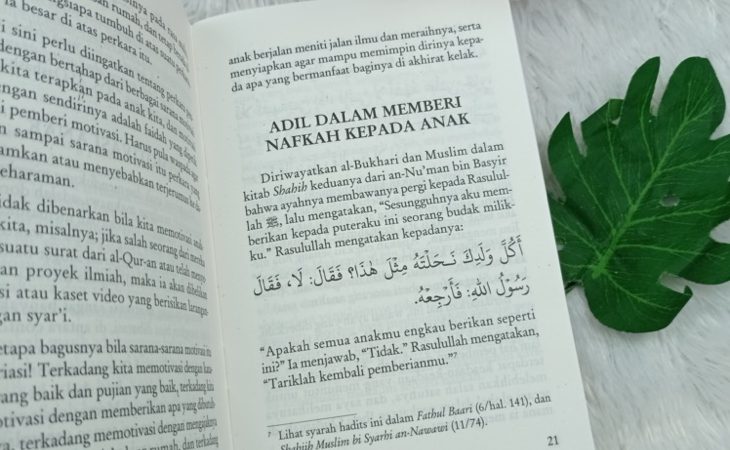 ia besar di atas perkara itu.
i sini perlu diingatkan tentang
dengan bertahap dari berbagai sarana
kita terapkan pada anak kita, dan
engan sendirinya adalah faidah yang
i pemberi motivasi. Harus pula
n sampai sarana motivasi itu
amkan atau menyebabkan terjerumus
eharaman.
idak dibenarkan bila kita memotivasi anak
kita, misalnya; jika salah seorang dari mereka
suatu surat dari al-Qur-an atau telah
an proyek ilmiah, maka ia akan dibelikan
si atau kaset video yang berisikan
gan syar'i.
etapa bagusnya bila sarana-sarana motivasi itu
riasi! Terkadang kita memotivasi dengan
ang baik dan pujian yang baik, terkadang
otivasi dengan memberikan apa yang
n, terkadang memotivasi dengan mengajaknya
rumah, dan terkadang
anak berjalan meniti jalan ilmu dan meraihnya, serta
menyiapkan agar mampu memimpin dirinya kepa-
da apa yang bermanfaat baginya di akhirat kelak.
ADIL DALAM MEMBERI
NAFKAH KEPADA ANAK
Diriwayatkan al-Bukhari dan Muslim dalam
kitab Shahih keduanya dari an-Nu'man bin Basyir
bahwa ayahnya membawanya pergi kepada Rasulul-
lah ﷺ, lalu mengatakan, "Sesungguhnya aku mem-
berikan kepada puteraku ini seorang budak milik-
ku." Rasulullah mengatakan kepadanya:
أَكُلَّ وَلَدِكَ نَحَلْتَهُ مِثْلَ هٰذَا؟ فَقَالَ: لَا، فَقَالَ
رَسُوْلُ اللهِ: فَأَرْجِعْهُ.
"Apakah semua anakmu engkau berikan seperti
ini?" Ia menjawab, "Tidak." Rasulullah mengatakan,
"Tariklah kembali pemberianmu."⁷
⁷ Lihat syarah hadits ini dalam Fathul Baari (6/hal. 141), dan
Shahiih Muslim bi Syarhi an-Nawawi (11/74).
21